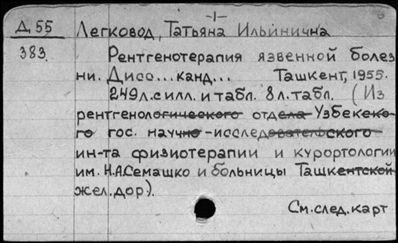 -1-
Д 55 Легковод, Татьяна Ильинична
383. Рентгенотерапия язвенной болез
ни. Дисс... канд... Ташкент, 1955.
249л. с илл. и табл. 8л. табл. (Из
рентгенологического отдела Узбекско-
го гос. научно-исследовательского
ин-та физиотерапии и курортологии
им. Н.А.Семашко и больницы Ташкентской
жел. дор).
См. след. карт